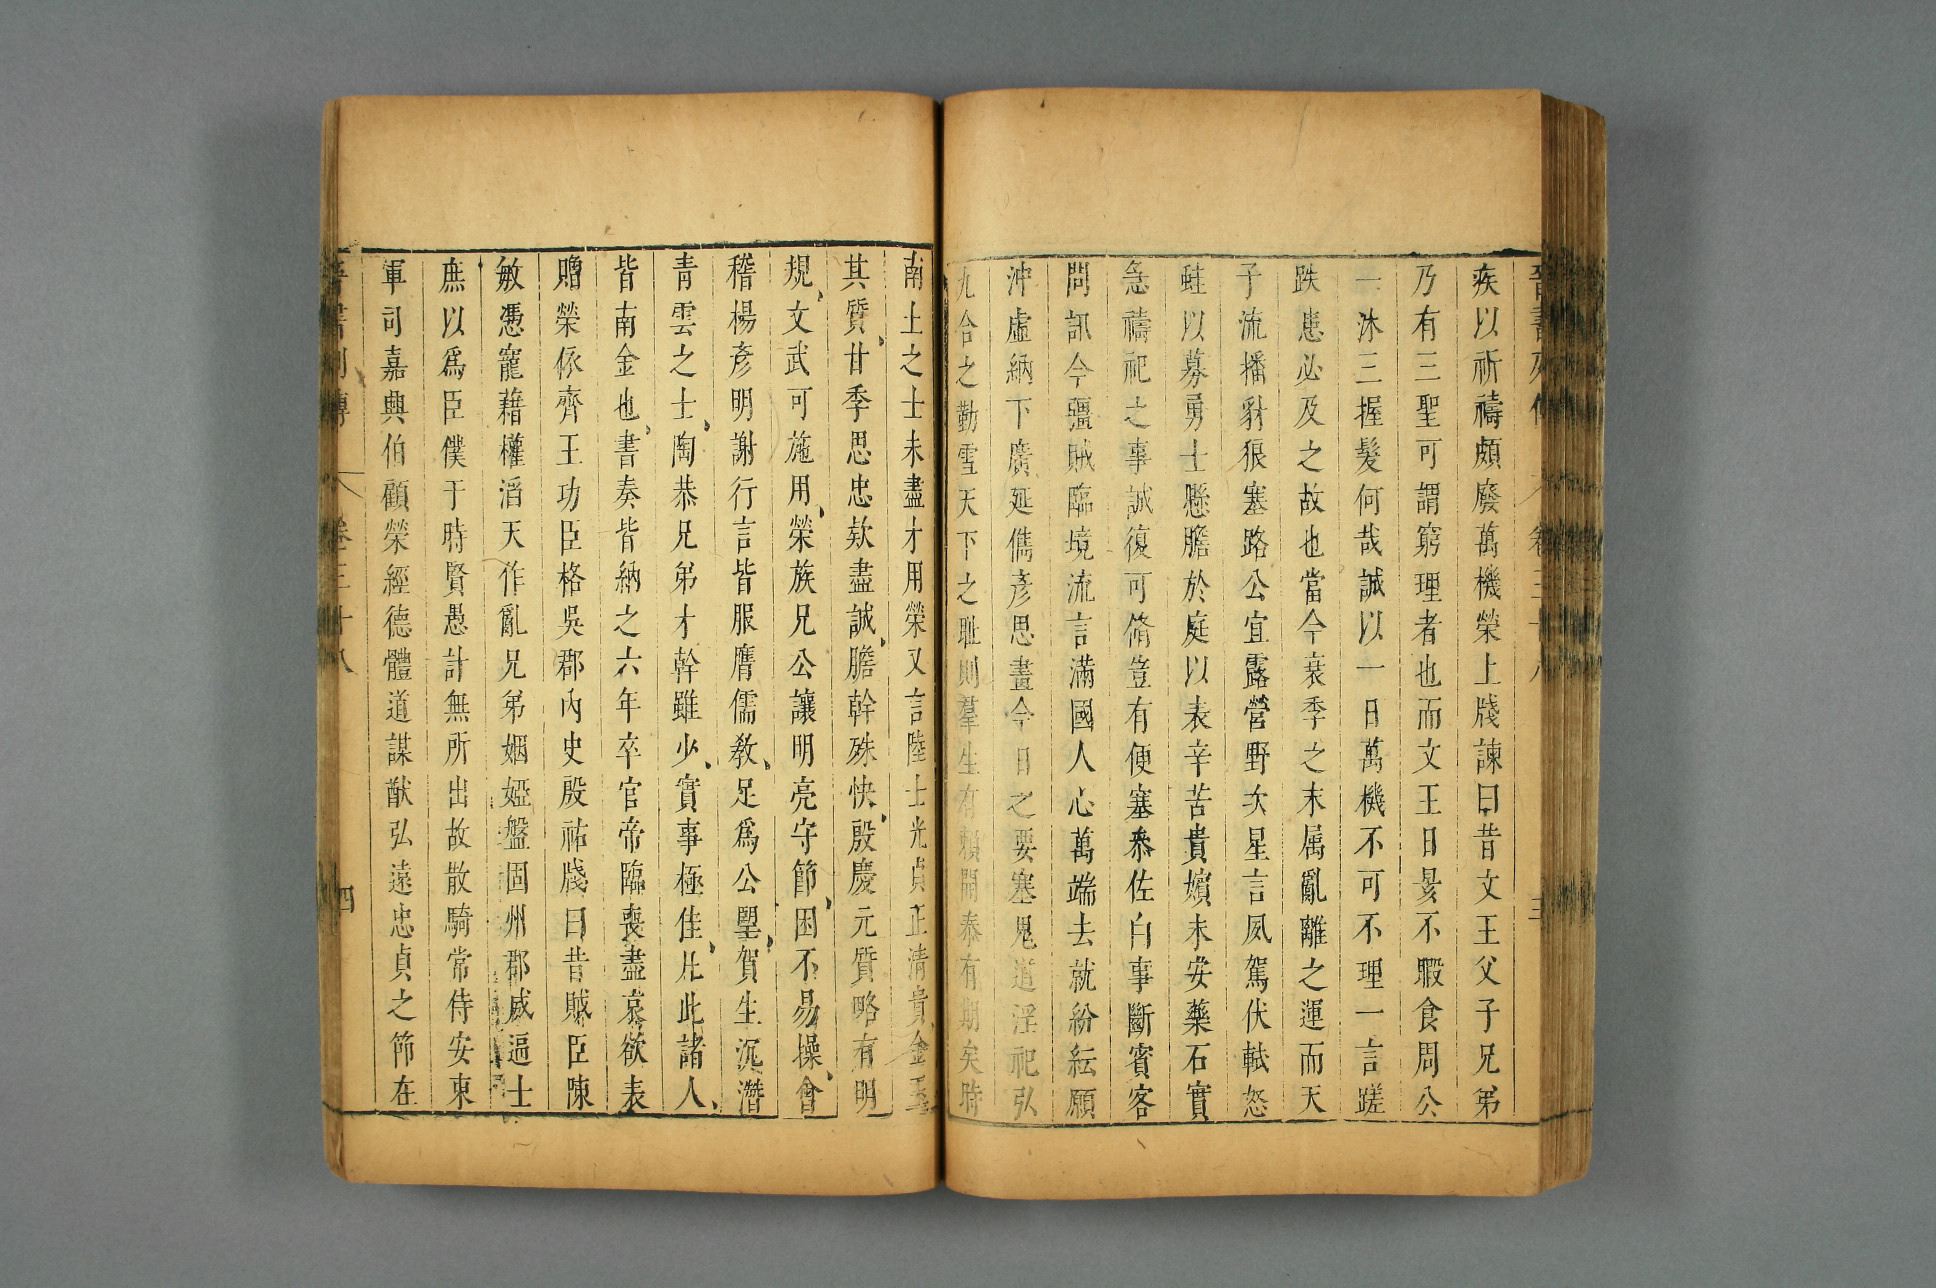 疾以祈禱頗廢萬機榮上牋諫曰昔文王父子兄弟
乃有三聖可謂窮理者也而文王日昃不暇食周公
一沐三握髮何哉誠以一日萬機不可不理一言蹉
跌患必及之故也當今衰季之末属亂離之運而天
子流播豺狼塞路公宜露營野次星言夙駕伏軾怒
蛙以募勇士懸膽於庭以表辛苦貴嬪未安藥石實
急禱祀之事誠復可脩豈有便塞參佐白事斷賓客
問訊今彊賊臨境流言滿國人心萬端去就紛紜願
沖虛納下廣延儁彥思畫今日之要塞鬼道淫祀弘
九合之勤雪天下之耻則羣生有賴開泰有期矣時
南土之士未盡才用榮又言陸士光貞正清貴金玉
其質甘季思忠欵盡誠膽幹殊快殷慶元質略有明
規文武可施用榮族兄公讓明亮守節困不易操會
稽楊彥明謝行言皆服膺儒教足爲公望賀生沉潛
青雲之士陶恭兄弟才幹雖少實事極佳凡此諸人
皆南金也書奏皆納之六年卒官帝臨喪盡哀欲表
贈榮依齊王功臣格吳郡內史殷祐牋曰昔賊臣陳
敏憑寵藉權滔天作亂兄弟姻婭盤固州郡威逼士
庶以爲臣僕于時賢愚計無所出故散騎常侍安東
軍司嘉興伯顧榮經德體道謀猷弘遠忠貞之節在
晉書列傳 卷三十八 四